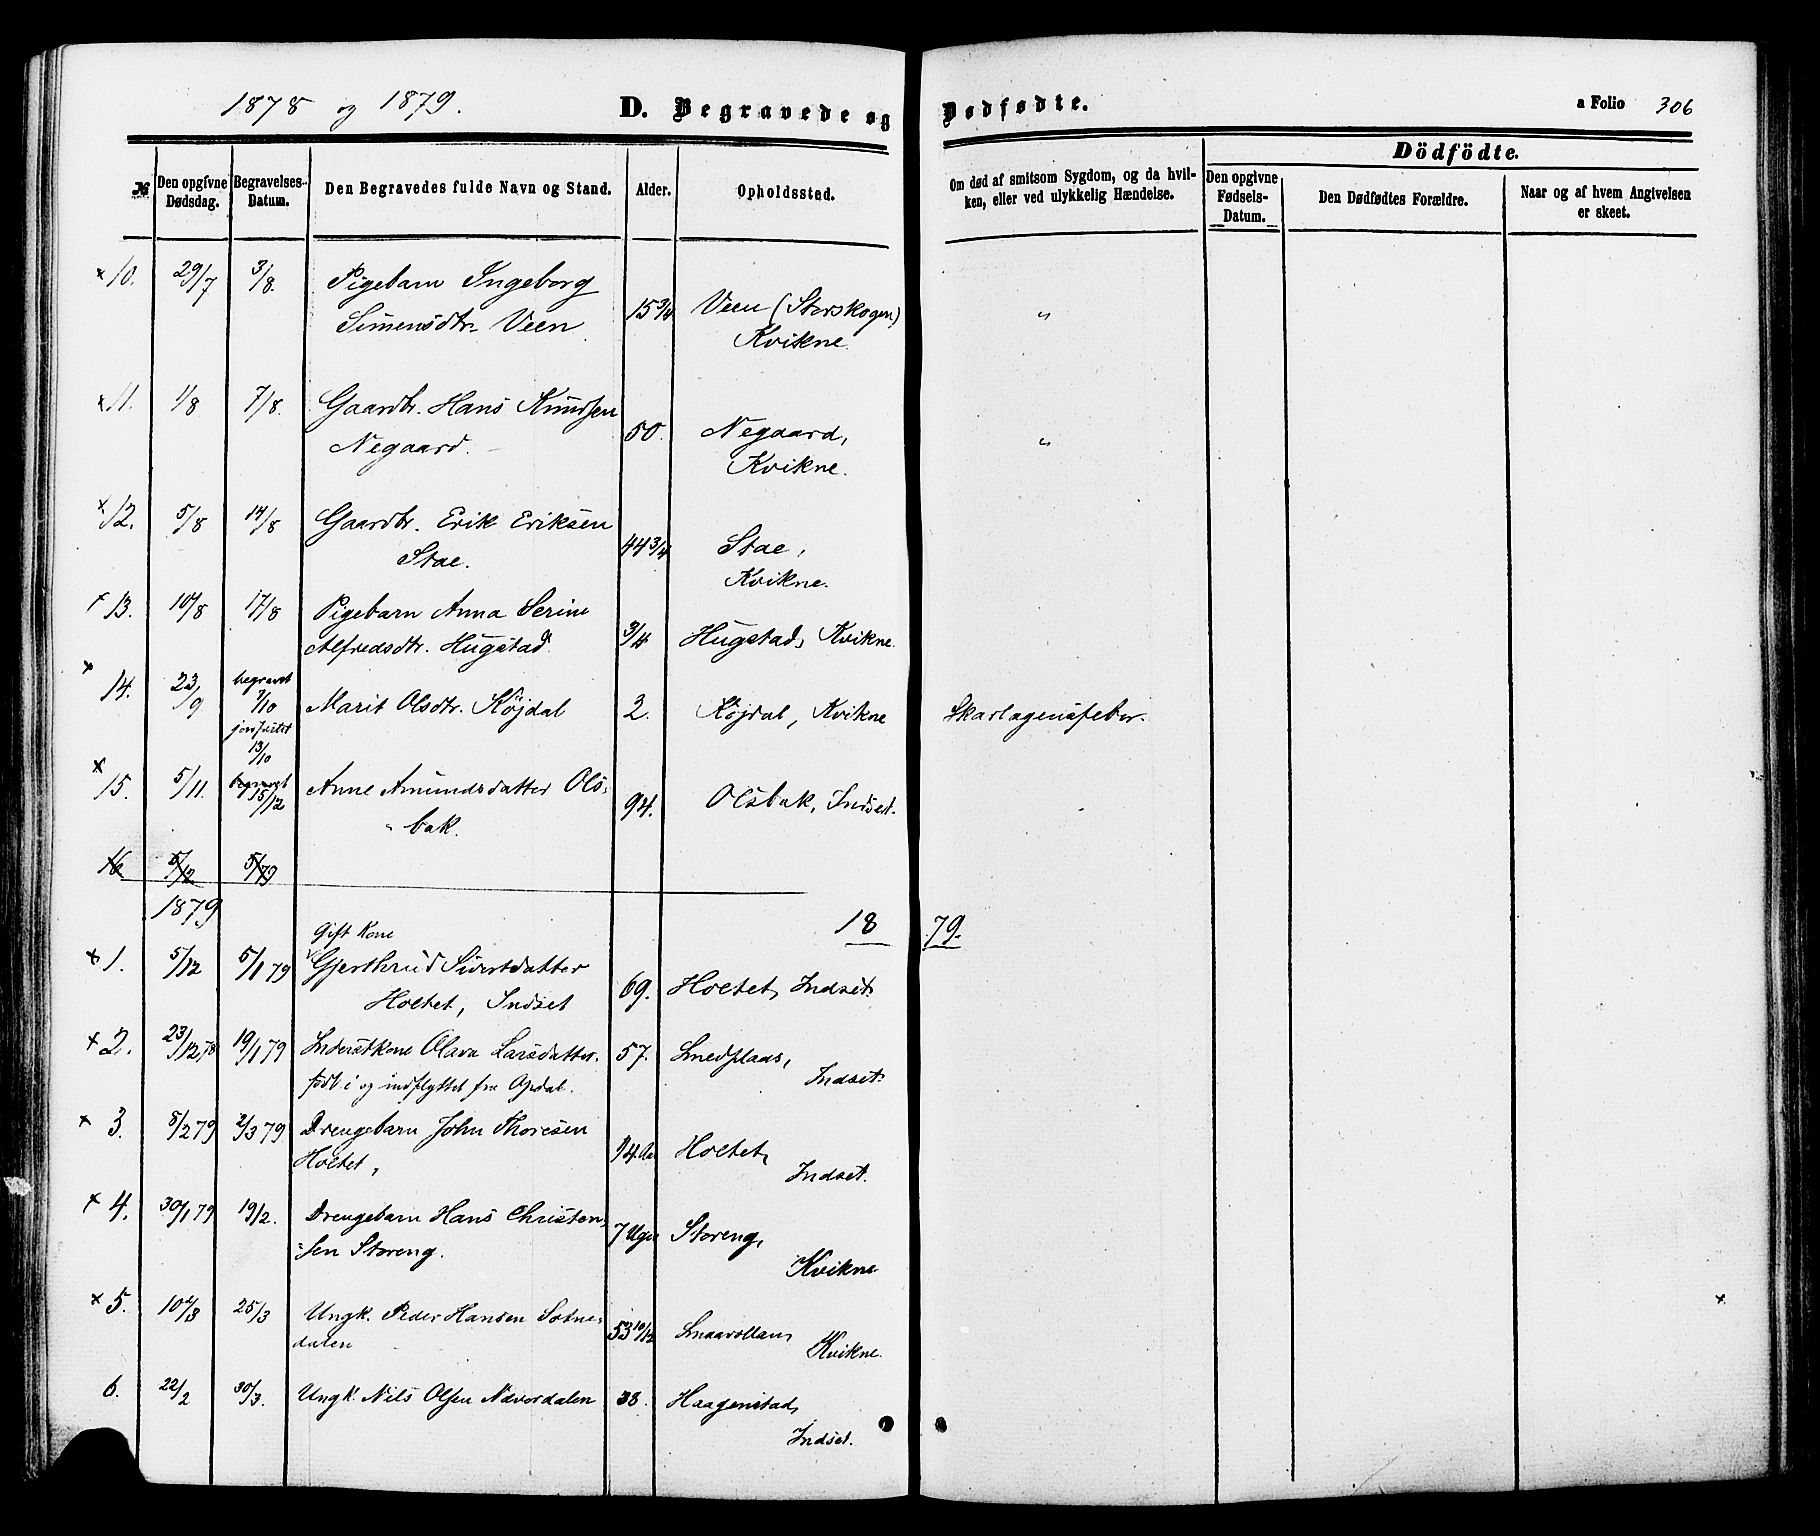 1878 og 1879. D. Begravede og Dødfødte. a Folio 306
Dödfödte.
№ Den opgivne Dødsdag. Begravelses-Datum. Den Begravedes fulde Navn og Stand. Alder. Opholdssted. Om død af smitsom Sygdom, og da hvilken, eller ved ulykkelig Hændelse. Den opgivne Fødsels-Datum. Den Dødfødtes Forældre. Naar og af hvem Angivelsen er skeet.
×10. 29/7 3/8. Pigebarn Ingeborg 15 3/4 Veen (Storskogen) "
Simensdtr. Veen Kvikne.
×11. 1/8 7/8. Gaardbr. Hans Knudsen 50. Negaard, "
Negaard. Kvikne.
×12. 5/8 14/8 Gaardbr. Erik Eriksen 44 3/4 Stae,
Stae. Kvikne.
×13. 10/8 17/8 Pigebarn Anna Serine
Alfredsdtr. Hugstad. 3/4 Hugstad, Kvikne.
×14. 23/9 begravet 7/10 Marit Olsdtr. Köjdal 2. Köjdal, Kvikne Skarlagensfeber.
jordfæstet 13/10
×15. 5/11. begravet 15/12 Anne Amundsdatter Ols- 94. Olsbak, Indset.
bak.
16 5/12 5/79
1879 18 79.
Gift Kone
×1. 5/12 5/1 79 Gjerthrud Sivertdatter
Holtet, Indset 69. Holtet, Indset.
×2. 23/12 78 19/1 79 Inderstkone Olava Larsdatter. 57. Smedplads,
født i og indflyttet fra Opdal. Indset.
×3. 8/2 79 2/3 79. Drengebarn John Thoresen Holtet,
Holtet, Indset.
×4. 30/1 79 19/2. Drengebarn Hans Christen- 7 Uger Storeng,
sen Storeng. Kvikne
×5. 10/3 25/3 Ungk. Peder Hansen Sotne- 53 10/12 Smaavollan,
dalen Kvikne. ×
6. 22/2 30/3. Ungk. Nils Olsen Nævordalen 38. Haagenstad,
Indset.